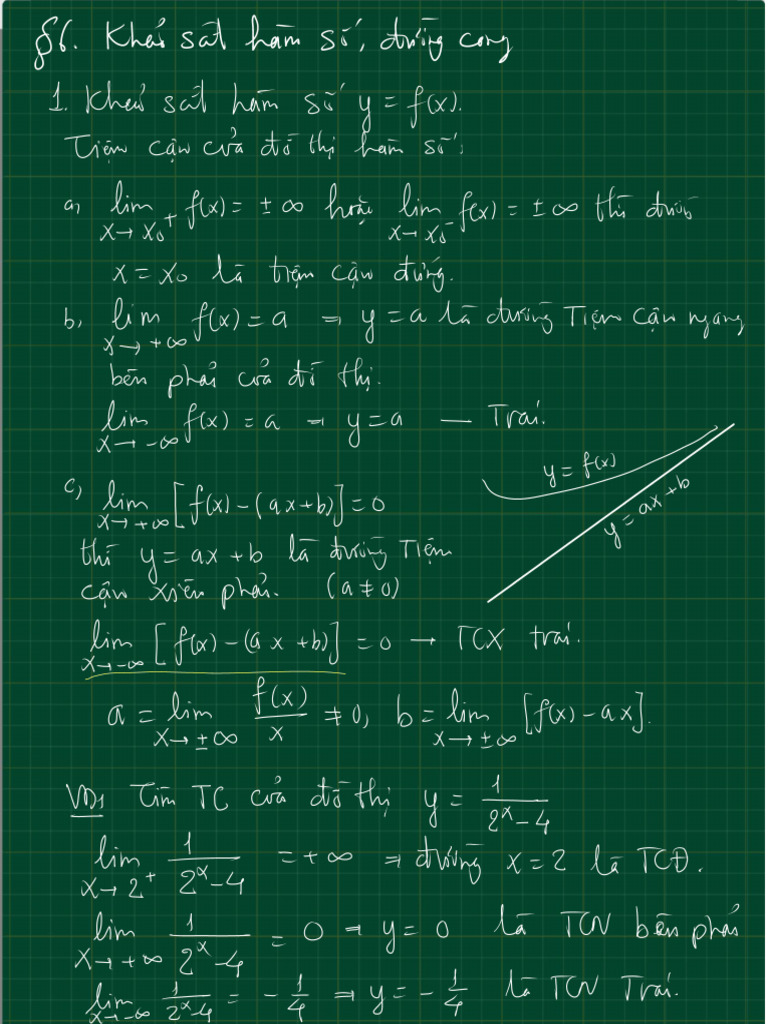 §6. Khảo sát hàm số, đường cong
1. Khảo sát hàm số y = f(x).
Tiệm cận của đồ thị hàm số:
a, lim x→x₀⁺ f(x) = ±∞ hoặc lim x→x₀⁻ f(x) = ±∞ thì đường
x = x₀ là tiệm cận đứng.
b, lim x→+∞ f(x) = a → y = a là đường Tiệm cận ngang
bên phải của đồ thị.
lim x→-∞ f(x) = a → y = a — Trái.
c, lim x→+∞ [f(x) - (ax+b)] = 0
y = f(x)
y = ax+b
thì y = ax+b là đường Tiệm
cận xiên phải. (a ≠ 0)
lim x→-∞ [f(x) - (ax+b)] = 0 → TCX trái.
a = lim x→±∞ f(x)/x ≠ 0, b = lim x→±∞ [f(x) - ax].
VD1 Tìm TC của đồ thị y = 1/(2ˣ-4)
lim x→2⁺ 1/(2ˣ-4) = +∞ → đường x = 2 là TCĐ.
lim x→+∞ 1/(2ˣ-4) = 0 → y = 0 là TCN bên phải
lim x→-∞ 1/(2ˣ-4) = -1/4 → y = -1/4 là TCN Trái.